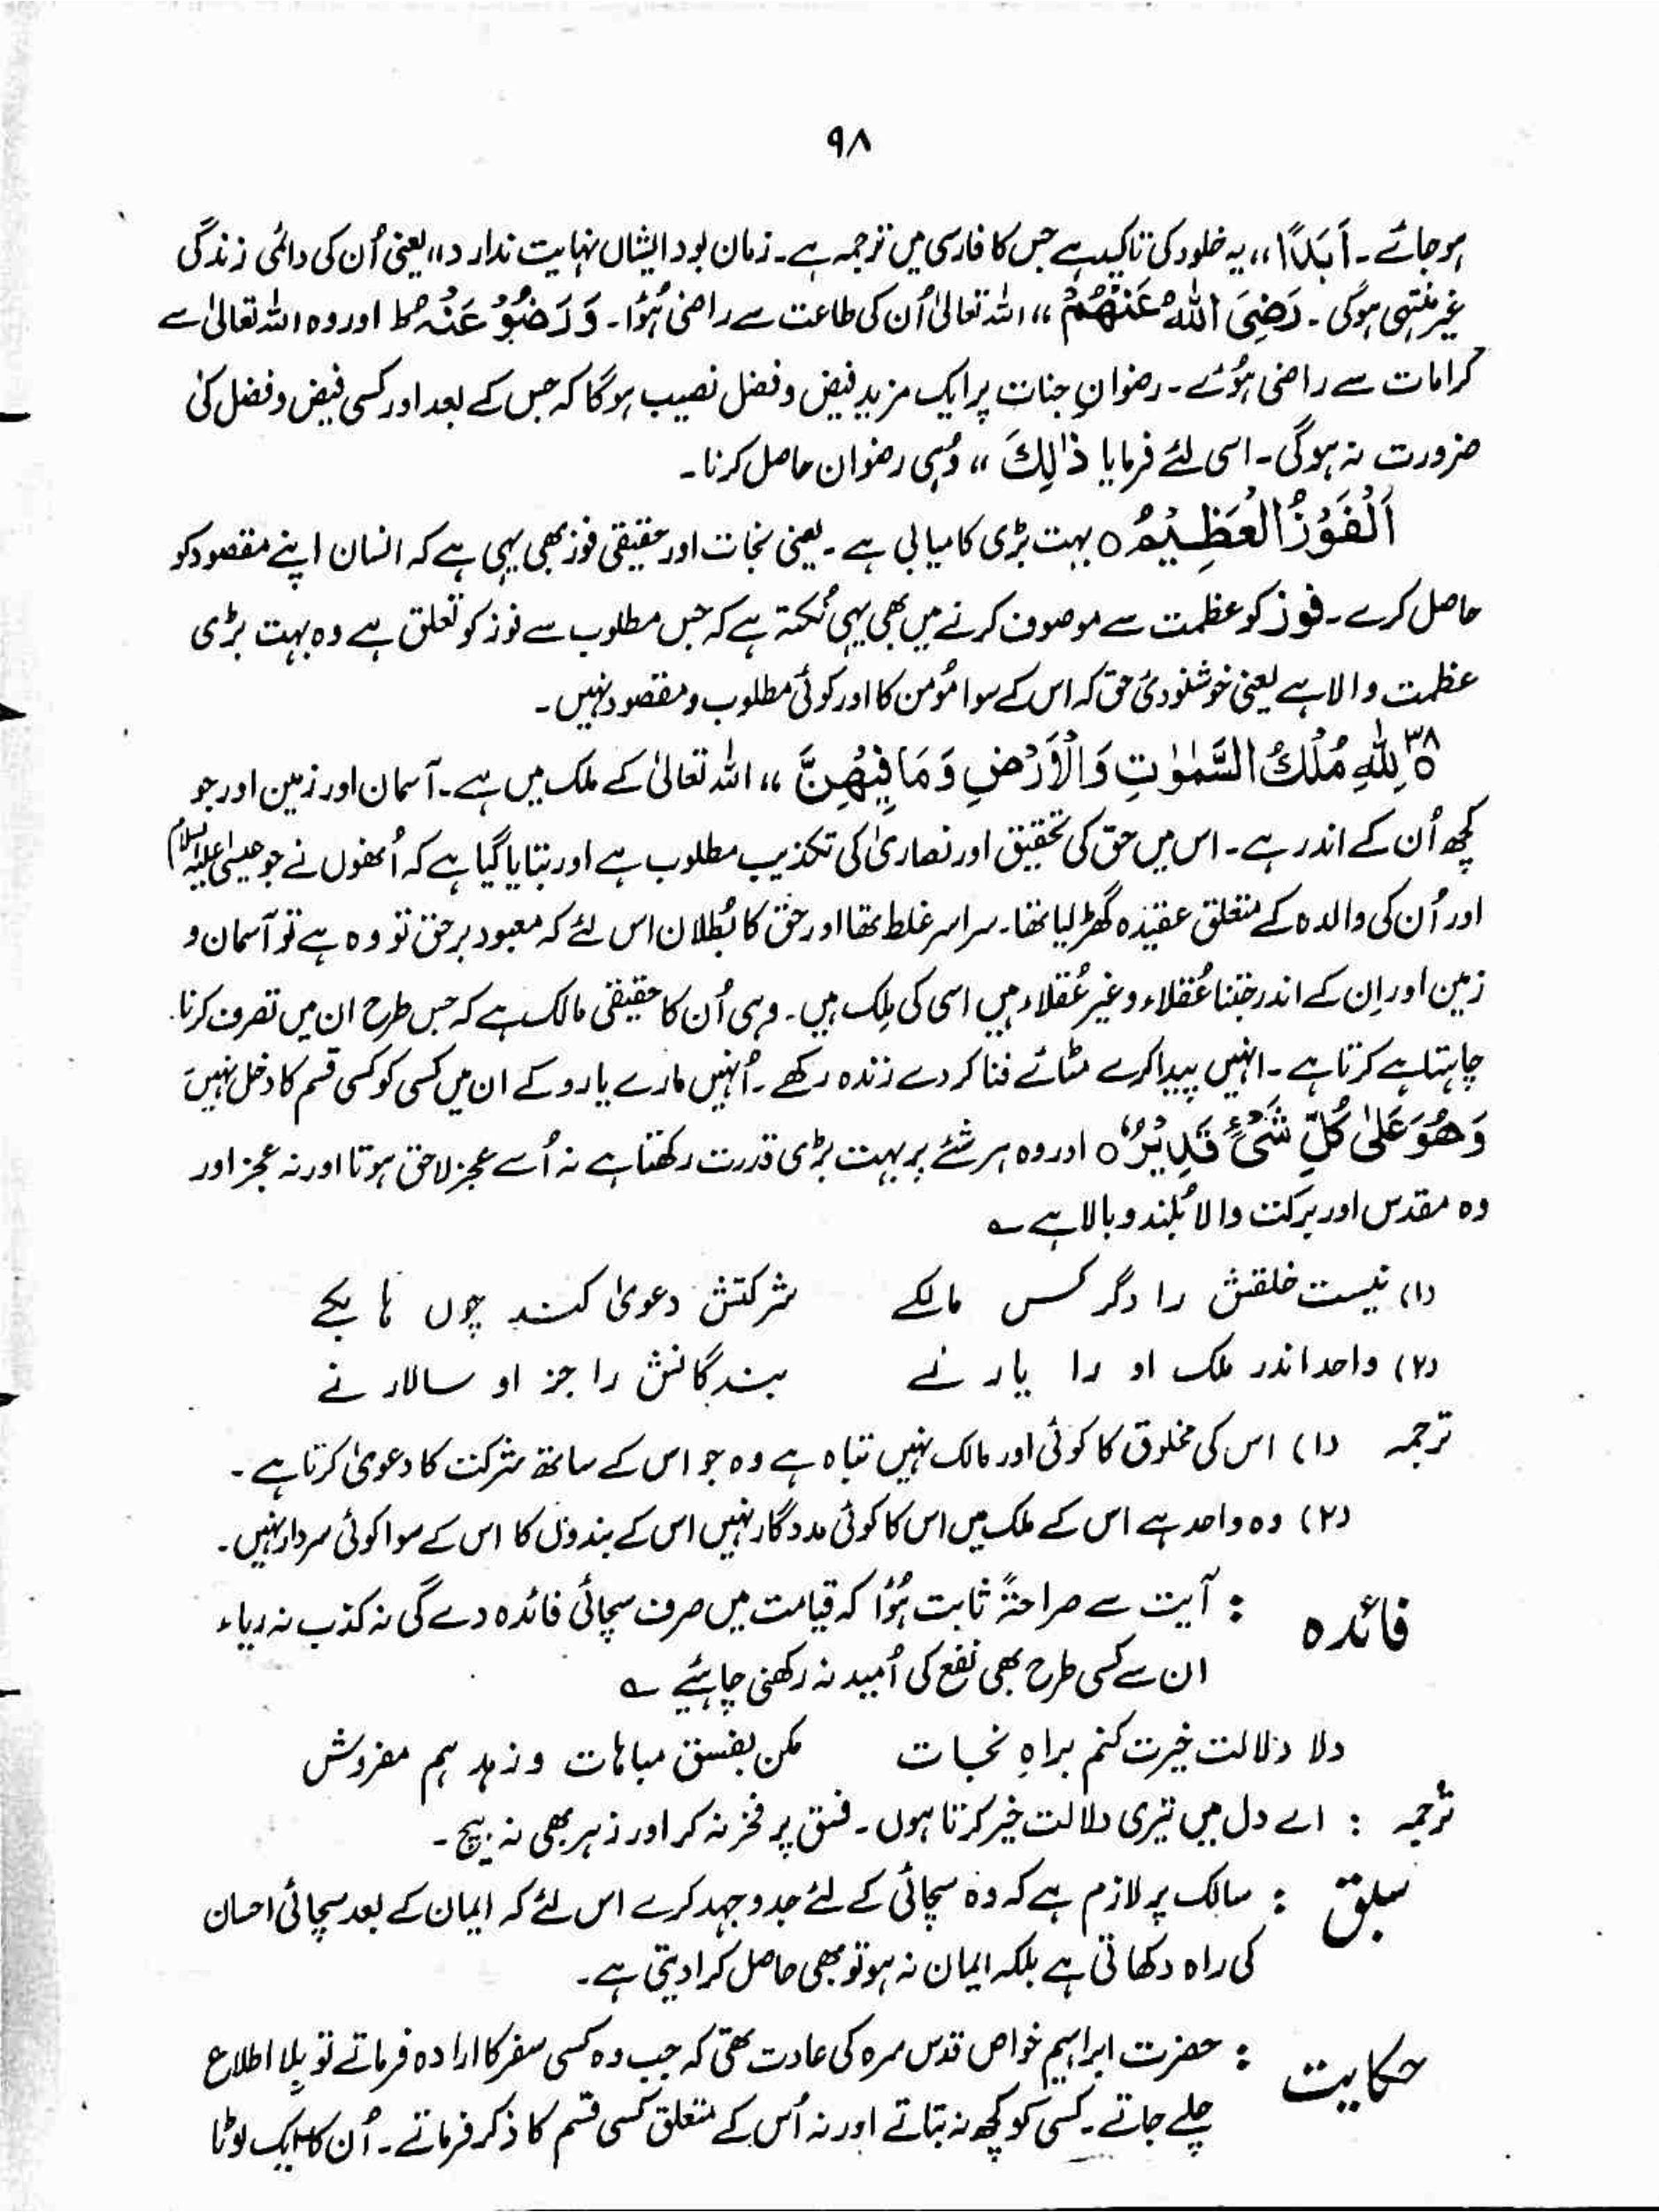 ۹۸
ہو جائے۔ اَبَدًا،، یہ خلود کی تاکید ہے جس کا فارسی میں ترجمہ ہے۔ زمان بود ایشاں نہایت ندارد،، یعنی اُن کی دائمی زندگی
غیر منتہی ہوگی۔ رَضِیَ اللّٰهُ عَنْهُمْ،، اللہ تعالیٰ اُن کی طاعت سے راضی ہُوا۔ وَ رَضُوْ عَنْهُ ط اور وہ اللہ تعالیٰ سے
کرامات سے راضی ہُوئے۔ رضوانِ جنات پر ایک مزید فیض و فضل نصیب ہوگا کہ جس کے بعد اور کسی فیض و فضل کی
ضرورت نہ ہوگی۔ اسی لئے فرمایا ذٰلِكَ،، وُہی رضوان حاصل کرنا۔
اَلْفَوْزُ الْعَظِیْمُ ○ بہت بڑی کامیابی ہے۔ یعنی نجات اور حقیقی فوز بھی یہی ہے کہ انسان اپنے مقصود کو
حاصل کرے۔ فوز کو عظمت سے موصوف کرنے میں بھی یہی نُکتہ ہے کہ جس مطلوب سے فوز کو تعلق ہے وہ بہت بڑی
عظمت والا ہے یعنی خوشنودیٔ حق کہ اس کے سوا مُومن کا اور کوئی مطلوب و مقصود نہیں۔
۳۸ لِلّٰهِ مُلْكُ السَّمٰوٰتِ وَالْاَرْضِ وَمَا فِیْهِنَّ،، اللہ تعالیٰ کے ملک میں ہے۔ آسمان اور زمین اور جو
کچھ اُن کے اندر ہے۔ اس میں حق کی تحقیق اور نصاریٰ کی تکذیب مطلوب ہے اور بتایا گیا ہے کہ اُنھوں نے جو عیسیٰ علیہ السلام
اور اُن کی والدہ کے متعلق عقیدہ گھڑ لیا تھا۔ سراسر غلط تھا اور حق کا بُطلان اس لئے کہ معبود برحق تو وہ ہے تو آسمان و
زمین اور اِن کے اندر جتنا عُقلاء و غیر عُقلاء ہیں اسی کی مِلک ہیں۔ وہی اُن کا حقیقی مالک ہے کہ جس طرح ان میں تصرف کرنا
چاہتا ہے کرتا ہے۔ انہیں پیدا کرے مٹائے فنا کر دے زندہ رکھے۔ اُنہیں مارے یا روکے ان میں کسی کو کسی قسم کا دخل نہیں
وَهُوَ عَلٰی كُلِّ شَیْءٍ قَدِیْرٌ ○ اور وہ ہر شئے پر بہت بڑی قدرت رکھتا ہے نہ اُسے عجز لاحق ہوتا اور نہ عجز اور
وہ مقدس اور برکت والا بُلند و بالا ہے ؎
(۱) نیست خلقش را دگر کس مالکے شرکتش دعویٰ کند چوں ہا لکے
(۲) واحد اندر ملک او را یار نے بندگانش را جز او سالار نے
ترجمہ (۱) اس کی مخلوق کا کوئی اور مالک نہیں تباہ ہے وہ جو اس کے ساتھ شرکت کا دعویٰ کرتا ہے۔
(۲) وہ واحد ہے اس کے ملک میں اس کا کوئی مددگار نہیں اس کے بندوں کا اس کے سوا کوئی سردار نہیں۔
فائدہ : آیت سے صراحتہً ثابت ہُوا کہ قیامت میں صرف سچائی فائدہ دے گی نہ کذب نہ ریاء
ان سے کسی طرح بھی نفع کی اُمید نہ رکھنی چاہئیے ؎
دلا دلالت خیرت کنم براہِ نجات مکن بفسق مباہات و زہد ہم مفروش
ترجمہ : اے دل میں تیری دلالت خیر کرتا ہوں۔ فسق پر فخر نہ کر اور زہر بھی نہ بیچ۔
سبق : سالک پر لازم ہے کہ وہ سچائی کے لئے جدوجہد کرے اس لئے کہ ایمان کے بعد سچائی احسان
کی راہ دکھاتی ہے بلکہ ایمان نہ ہو تو بھی حاصل کرا دیتی ہے۔
حکایت : حضرت ابراہیم خواص قدس سرہ کی عادت تھی کہ جب وہ کسی سفر کا ارادہ فرماتے تو بِلا اطلاع
چلے جاتے۔ کسی کو کچھ نہ بتاتے اور نہ اُس کے متعلق کسی قسم کا ذکر فرماتے۔ اُن کا ایک لوٹا